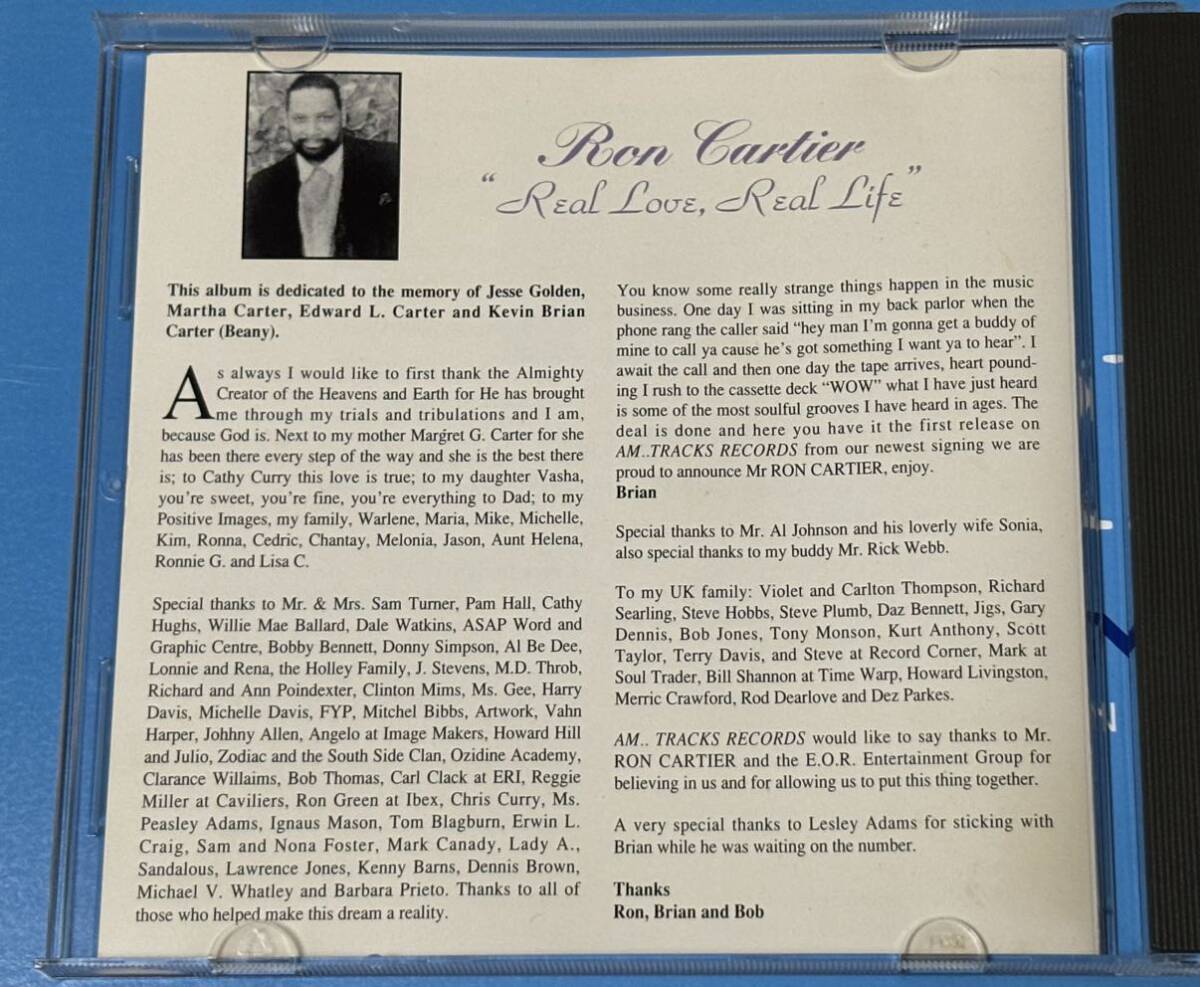 Ron Cartier
“Real Love, Real Life”
This album is dedicated to the memory of Jesse Golden,
Martha Carter, Edward L. Carter and Kevin Brian
Carter (Beany).
As always I would like to first thank the Almighty
Creator of the Heavens and Earth for He has brought
me through my trials and tribulations and I am,
because God is. Next to my mother Margret G. Carter for she
has been there every step of the way and she is the best there
is; to Cathy Curry this love is true; to my daughter Vasha,
you’re sweet, you’re fine, you’re everything to Dad; to my
Positive Images, my family, Warlene, Maria, Mike, Michelle,
Kim, Ronna, Cedric, Chantay, Melonia, Jason, Aunt Helena,
Ronnie G. and Lisa C.
Special thanks to Mr. & Mrs. Sam Turner, Pam Hall, Cathy
Hughs, Willie Mae Ballard, Dale Watkins, ASAP Word and
Graphic Centre, Bobby Bennett, Donny Simpson, Al Be Dee,
Lonnie and Rena, the Holley Family, J. Stevens, M.D. Throb,
Richard and Ann Poindexter, Clinton Mims, Ms. Gee, Harry
Davis, Michelle Davis, FYP, Mitchel Bibbs, Artwork, Vahn
Harper, Johhny Allen, Angelo at Image Makers, Howard Hill
and Julio, Zodiac and the South Side Clan, Ozidine Academy,
Clarance Willaims, Bob Thomas, Carl Clack at ERI, Reggie
Miller at Caviliers, Ron Green at Ibex, Chris Curry, Ms.
Peasley Adams, Ignaus Mason, Tom Blagburn, Erwin L.
Craig, Sam and Nona Foster, Mark Canady, Lady A.,
Sandalous, Lawrence Jones, Kenny Barns, Dennis Brown,
Michael V. Whatley and Barbara Prieto. Thanks to all of
those who helped make this dream a reality.
You know some really strange things happen in the music
business. One day I was sitting in my back parlor when the
phone rang the caller said “hey man I’m gonna get a buddy of
mine to call ya cause he’s got something I want ya to hear”. I
await the call and then one day the tape arrives, heart pound-
ing I rush to the cassette deck “WOW” what I have just heard
is some of the most soulful grooves I have heard in ages. The
deal is done and here you have it the first release on
AM..TRACKS RECORDS from our newest signing we are
proud to announce Mr RON CARTIER, enjoy.
Brian
Special thanks to Mr. Al Johnson and his loverly wife Sonia,
also special thanks to my buddy Mr. Rick Webb.
To my UK family: Violet and Carlton Thompson, Richard
Searling, Steve Hobbs, Steve Plumb, Daz Bennett, Jigs, Gary
Dennis, Bob Jones, Tony Monson, Kurt Anthony, Scott
Taylor, Terry Davis, and Steve at Record Corner, Mark at
Soul Trader, Bill Shannon at Time Warp, Howard Livingston,
Merric Crawford, Rod Dearlove and Dez Parkes.
AM.. TRACKS RECORDS would like to say thanks to Mr.
RON CARTIER and the E.O.R. Entertainment Group for
believing in us and for allowing us to put this thing together.
A very special thanks to Lesley Adams for sticking with
Brian while he was waiting on the number.
Thanks
Ron, Brian and Bob